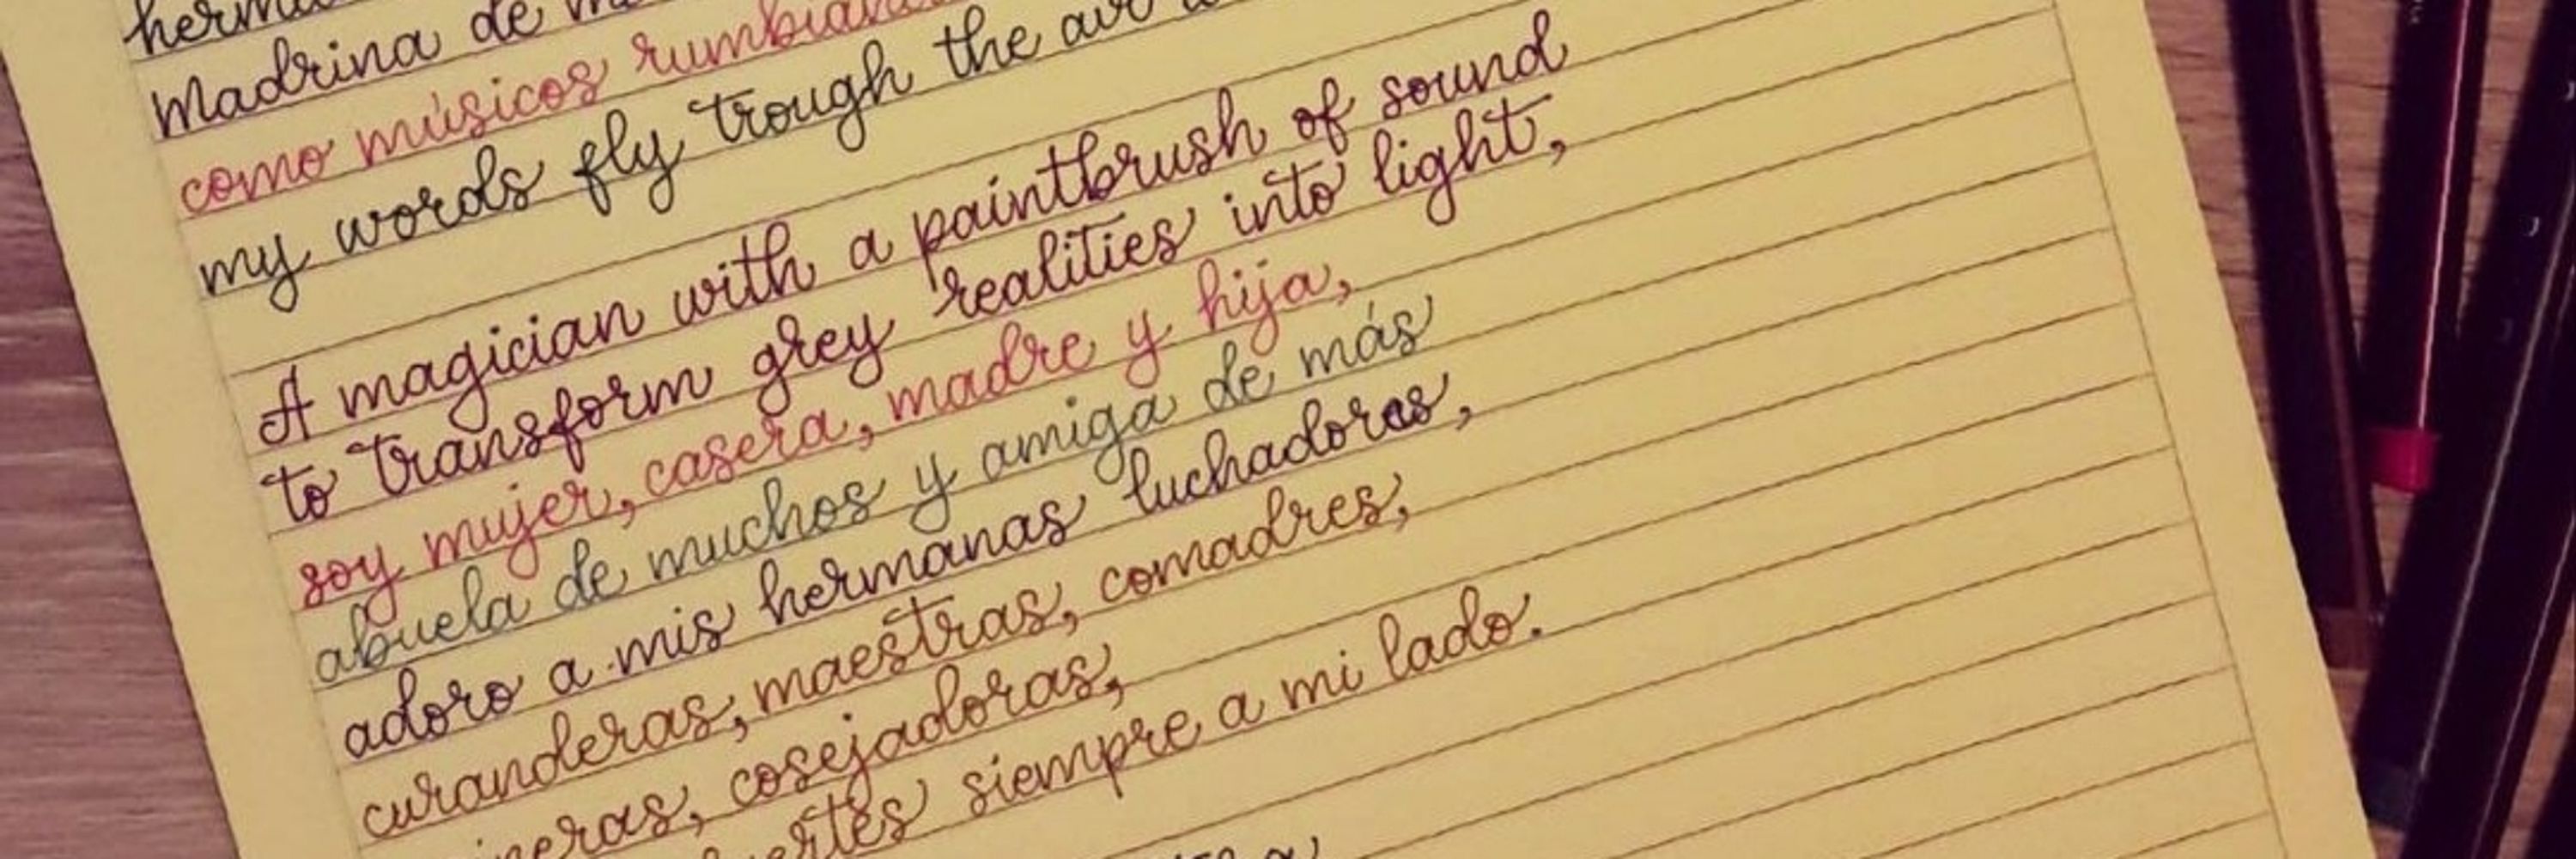 Madrina de
como músicos
my words fly trough the
A magician with a paintbrush of sound
to transform grey realities into light,
soy mujer, casera, madre y hija,
abuela de muchos y amiga de más
adoro a mis hermanas luchadoras,
curanderas, maestras, comadres,
cosejadoras,
siempre a mi lado.